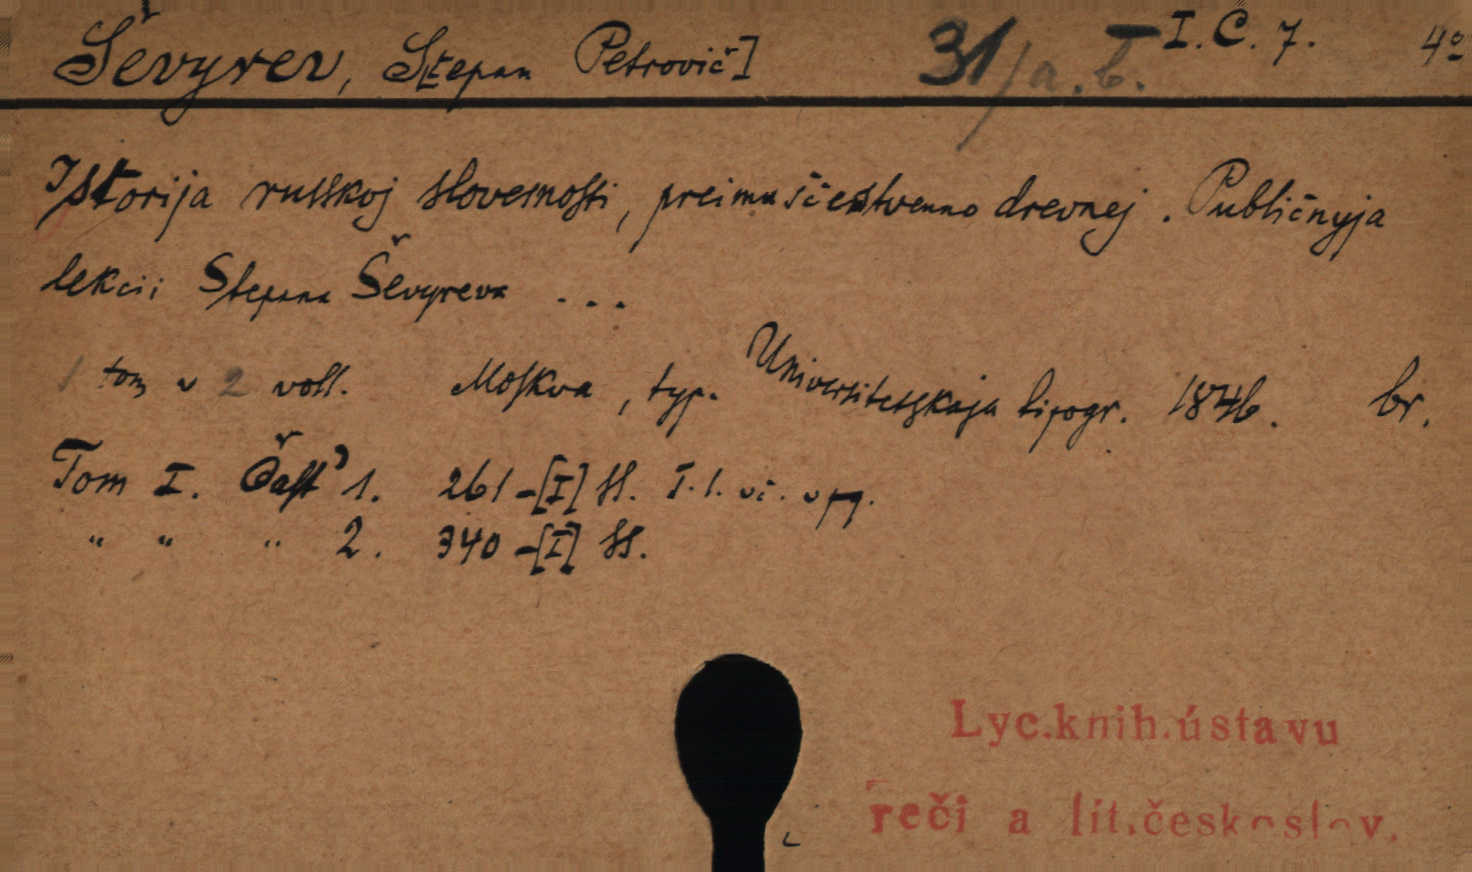 Ševyrev, S[tepan Petrovič] 31/a.b. I.C.7. 4º
Istorija russkoj slovesnosti, preimuščestvenno drevnej. Publičnyja
lekcii Stepana Ševyreva ...
1 tom v 2 voll. Moskva, typ. Universitetskaja tipogr. 1846. br.
Tom I. Časť 1. 261-[I] SS. T.l. vč. v pg.
" " " 2. 340-[I] SS.
Lyc.knih.ústavu
řeči a lit.českoslov.